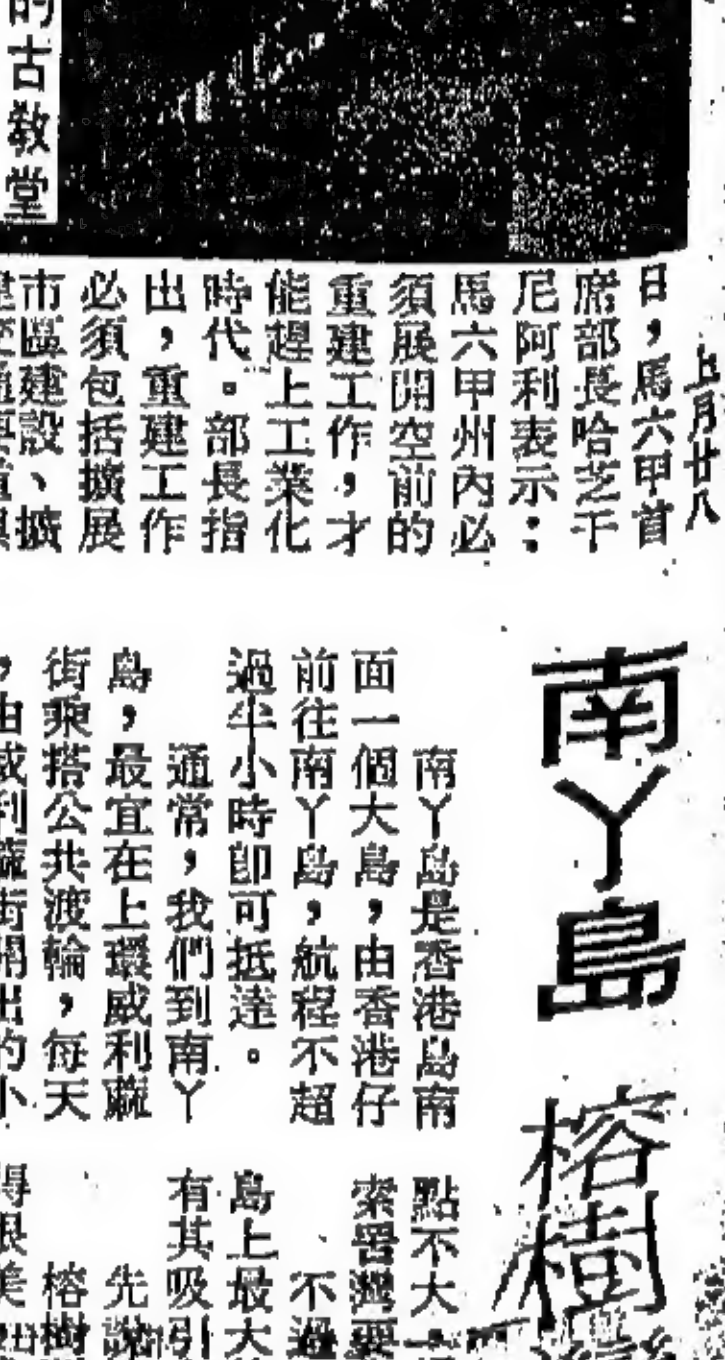 的古教堂
上月廿八
日，馬六甲首
席部長哈芝干
尼阿利表示：
馬六甲州內必
須展開空前的
重建工作，才
能趕上工業化
時代。部長指
出，重建工作
必須包括擴展
市區建設、擴
南丫島
榕樹
南丫島是香港島南
面一個大島，由香港仔
前往南丫島，航程不超
過半小時即可抵達。
通常，我們到南丫
島，最宜在上環威利蔴
街乘搭公共渡輪，每天
，由威利蔴街開出的小
點不大
索罟灣要
、不過
島上最大
有其吸引
先說
榕樹
得很美